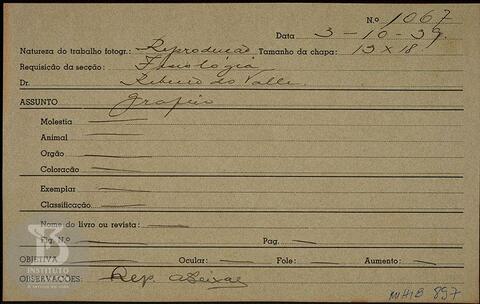 N.º 1067
Data 3-10-39.
Natureza do trabalho fotogr.: Reprodução Tamanho da chapa: 13 x 18
Requisição da secção: Fisiológia
Dr. Ribeiro do Valle.
ASSUNTO Grafico
Molestia
Animal
Orgão
Coloração
Exemplar
Classificação
Nome do livro ou revista:
Fig. N.º Pag.
OBJETIVA Ocular: Fole: Aumento:
INSTITUTO
OBSERVAÇÕES: Rep.
MHIB 897